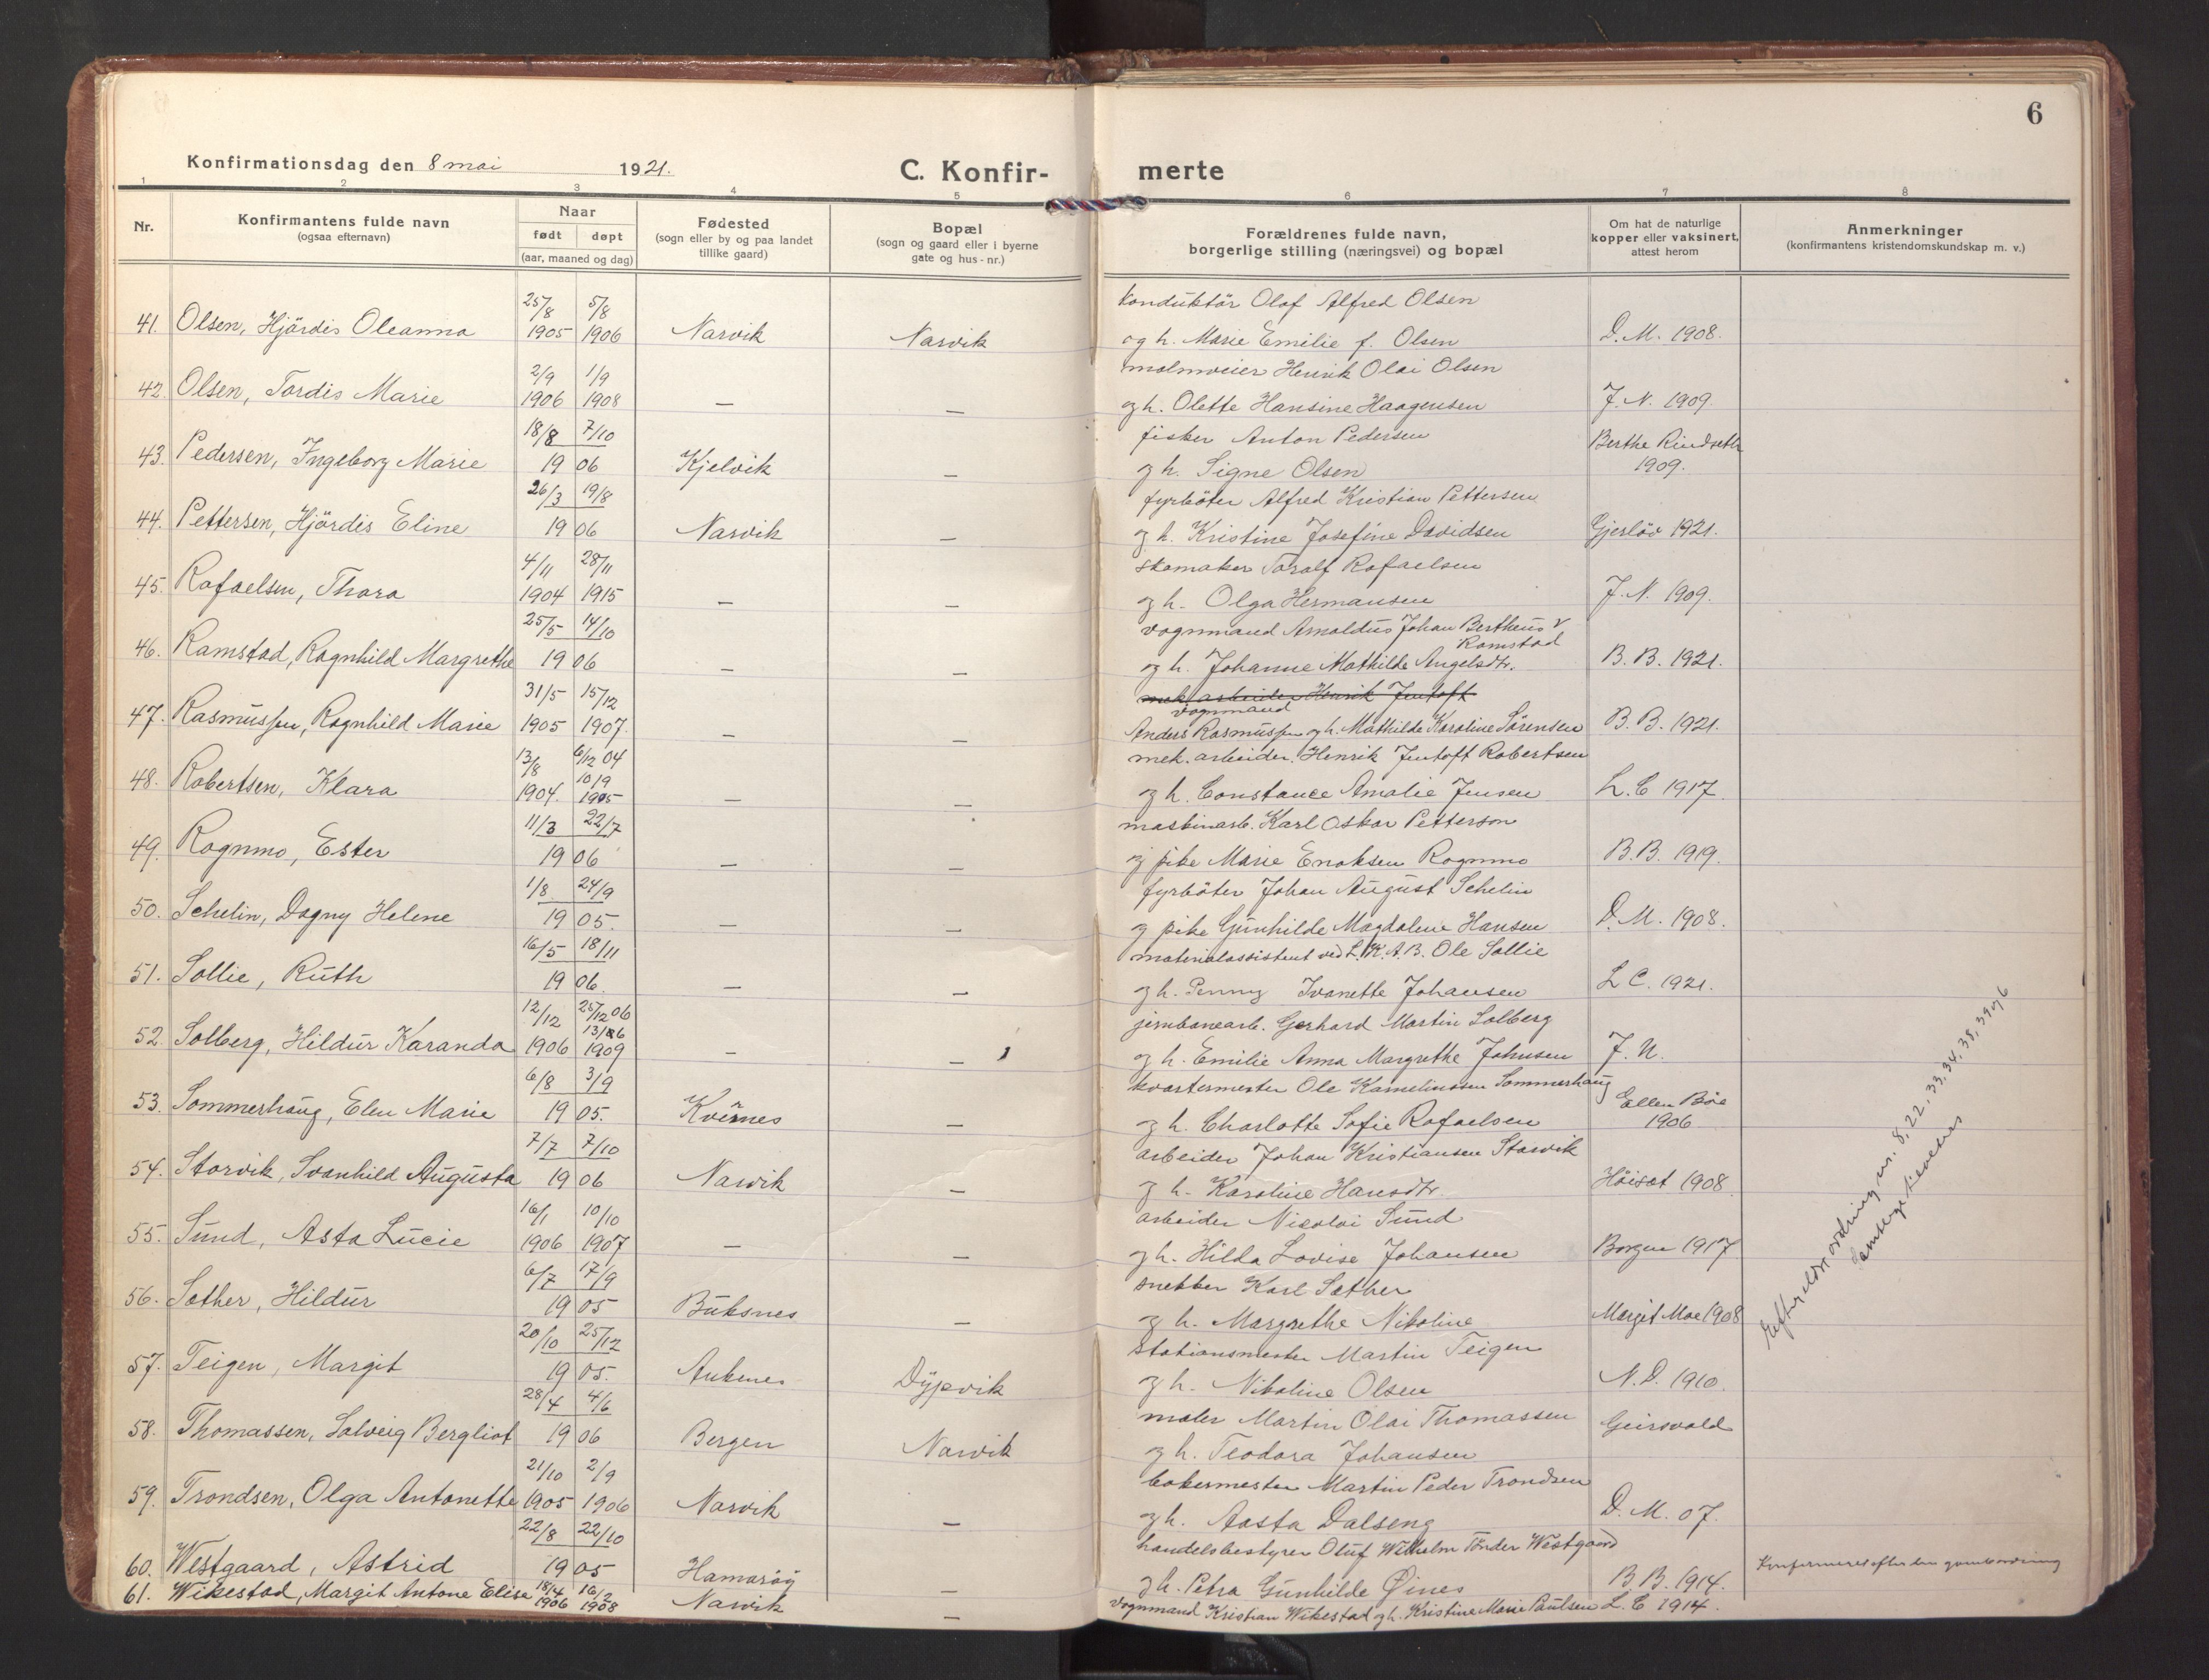 6
Konfirmationsdag den 8 mai 1921.
C. Konfir-merte
1 2 3 4 5 6 7 8
Nr.
Konfirmantens fulde navn
(ogsaa efternavn)
Naar
født døpt
(aar, maaned og dag)
Fødested
(sogn eller by og paa landet
tillike gaard)
Bopæl
(sogn og gaard eller i byerne
gate og hus-nr.)
Forældrenes fulde navn,
borgerlige stilling (næringsvei) og bopæl
Om hat de naturlige
kopper eller vaksinert,
attest herom
Anmerkninger
(konfirmantens kristendomskundskap m. v.)
25/8 5/8 Konduktör Olaf Alfred Olsen
41. Olsen, Hjördis Oleanna 1905 1906 Narvik Narvik og h. Marie Emilie f. Olsen D. M. 1908.
2/9 1/9 malmveier Henrik Olai Olsen
42. Olsen, Tordis Marie 1906 1908 — — og h. Olette Hansine Haagensen J. N. 1909.
18/8 7/10 fisker Anton Pedersen Berthe Rindseth
43. Pedersen, Ingeborg Marie 1906 Kjelvik — og h. Signe Olsen 1909.
26/3 19/8 fyrböter Alfred Kristian Pettersen
44. Pettersen, Hjördis Eline 1906 Narvik — og h. Kristine Josefine Davidsen Gjerlöv 1921.
4/11 28/11 skomaker Toralf Rafaelsen
45. Rafaelsen, Thora 1904 1915 — — og h. Olga Hermansen J. N. 1909.
25/5 14/10 vognmand Arnoldus Johan Bertheus
Ramstad
46. Ramstad, Ragnhild Margrethe 1906 — — og h. Johanne Mathilde Angelsdtr. B. B. 1921.
31/5 15/12 mek. arbeider Henrik Jentoft
vognmand
47. Rasmussen, Ragnhild Marie 1905 1907. — — Anders Rasmussen og h. Mathilde Karoline Sörensen B. B. 1921.
13/8 6/12 04 mek. arbeider. Henrik Jentoft Robertsen
10/9
48. Robertsen, Klara 1904. 1905 — — og h. Constance Amalie Jensen L. C 1917.
11/3 22/7 maskinarb. Karl Oskar Petterson
49. Rognmo, Ester 1906 — — og pike Marie Enoksen Rognmo B. B. 1919.
1/8 24/9 fyrböter Johan August Schelin
50. Schelin, Dagny Helene 1905. — — og pike Gunhilde Magdalene Hansen D. M. 1908.
16/5 18/11 materialassistent ved L. K. A. B. Ole Sollie
51. Sollie, Ruth 1906. — — og h. Penny Ivanette Johansen L C. 1921.
12/12 25/12 06 jernbanearb. Gerhard Martin Solberg
52. Solberg, Hildur Karanda 1906 1909 — — og h. Emilie Anna Margrethe Johnsen J. N.
6/8 3/9 kvartermester Ole Korneliussen Sommerhaug
53. Sommerhaug, Elen Marie 1905. Kvernes — og h. Charlotte Sofie Rafaelsen Ellen Böe
1906
7/7 7/10 arbeider Johan Kristiansen Storvik
54. Storvik, Svanhild Augusta 1906 Narvik — og h. Karoline Hansdtr. Höisæt 1908
16/1 10/10 arbeider Nicolai Sund
55. Sund, Asta Lucie 1906 1907 — — og h. Hilda Lovise Johansen Borgen 1917
6/7 17/9 snekker Karl Sæther
56. Sæther, Hildur 1905 Buksnes — og h. Margrethe Nikoline Margit Moe 1908
20/10 25/12 stationsmester Martin Teigen
57. Teigen, Margit 1905. Ankenes Dypvik og h. Nikoline Olsen N. D. 1910.
28/4 4/6 maler Martin Olai Thomassen Geirsvold
58. Thomassen, Solveig Bergliot 1906 Bergen Narvik og h. Teodora Johansen
21/10 2/9 bakermester Martin Peder Trondsen
59. Trondsen, Olga Antonette 1905 1906 Narvik — og h. Aasta Dalseng D. M. 07.
22/8 22/10 handelsbestyrer Oluf Wilhelm Tönder Westgaard
60. Westgaard, Astrid 1905 Hamaröy — og h. Petra Gunhilde Øines B B. 1914. Konfirmeret efter den gamle ordning
61. Wikestad, Margit Antone Elise 18/4 1906 16/2 1908 Narvik — Vognmand Kristian Wikestad og h. Kristine Marie Paulsen L. C 1914.
Efter eldre ordning nr. 8, 22, 33, 34, 38, 39 og 6